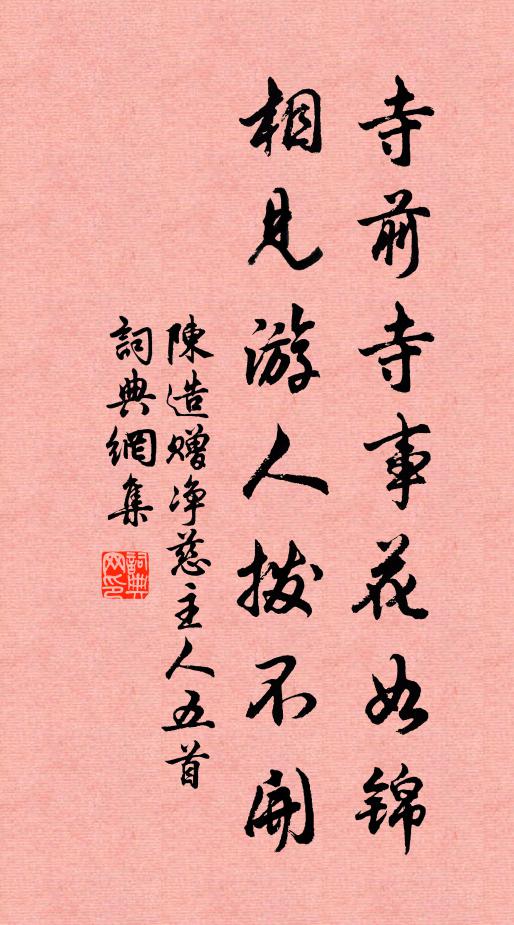 寺前寺事花如錦
相見游人拨不開
陳造赠净慈主人五首
詞典網集
詞典网印